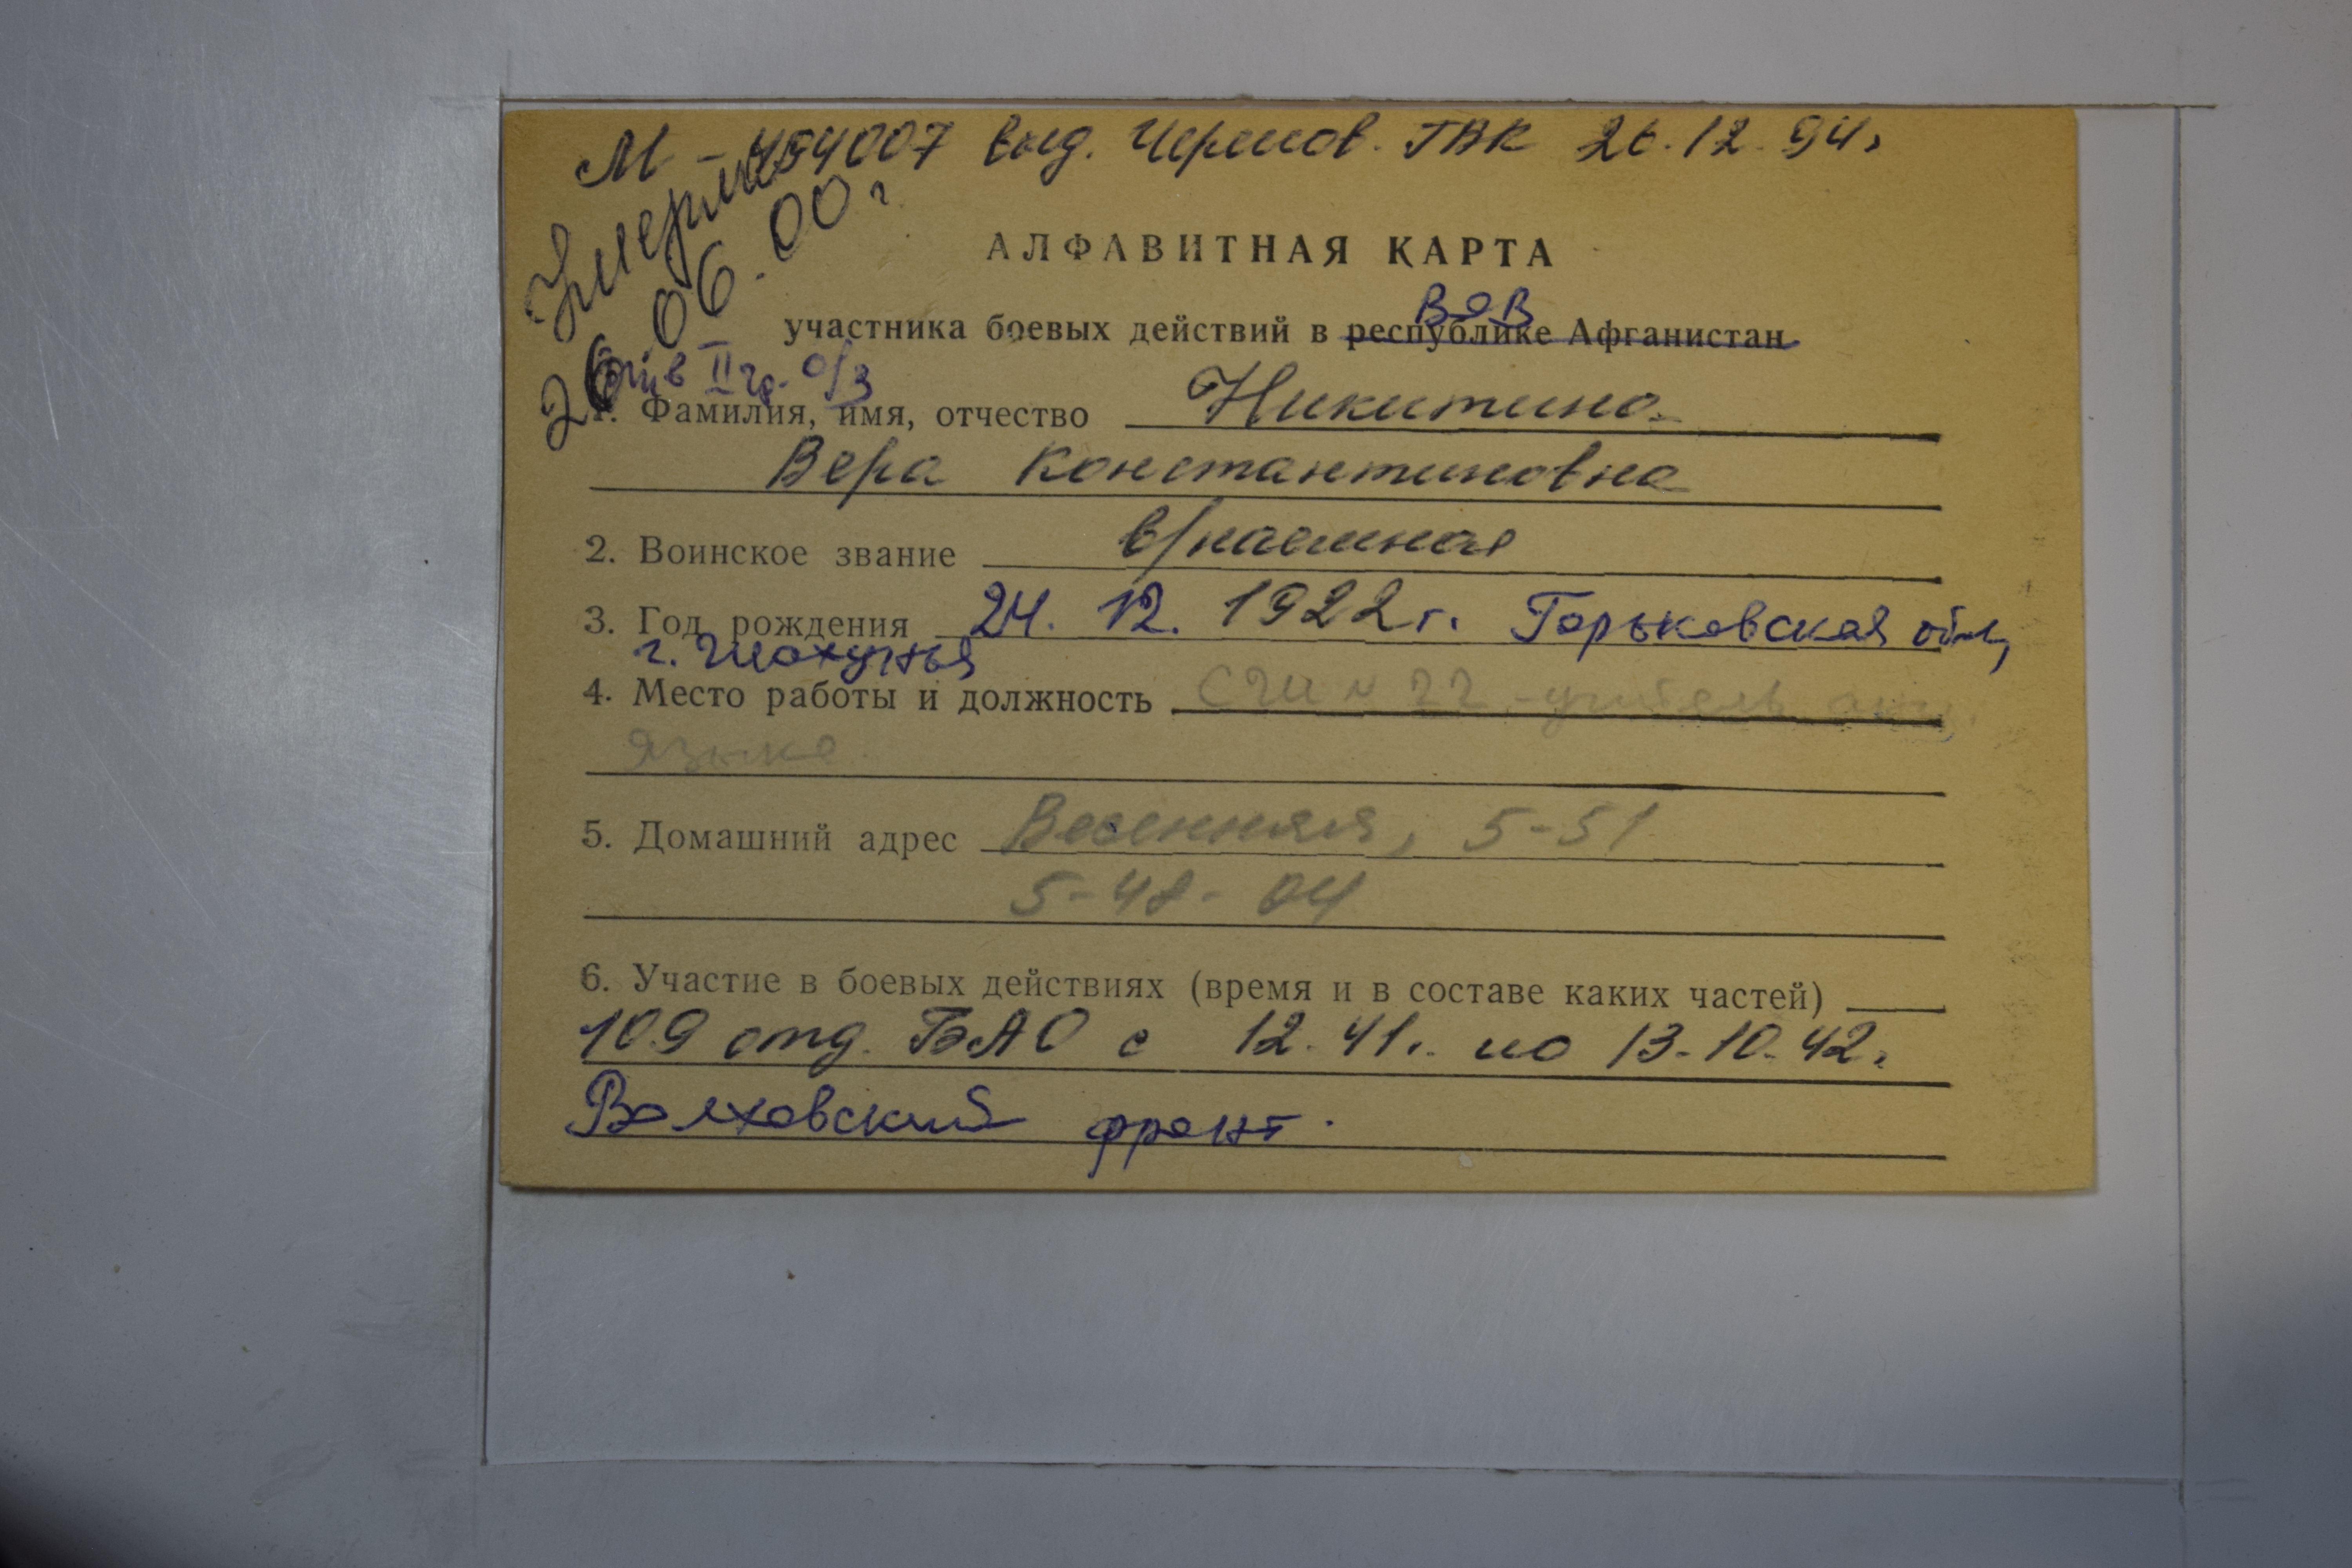 М - 454007 выд. Черепов. ГВК 26.12.94г
Умерла
26.06.00г
АЛФАВИТНАЯ КАРТА
ВОВ
участника боевых действий в республике Афганистан
инв II гр. о/з
1. Фамилия, имя, отчество Никитина
Вера Константиновна
2. Воинское звание в/наемная
3. Год рождения 24. 12. 1922г. Горьковская обл,
г. Шахунья
4. Место работы и должность СШ № 22 - учитель анг.
языка
5. Домашний адрес Весенняя, 5-51
5-48-04
6. Участие в боевых действиях (время и в составе каких частей)
109 отд. БАО с 12.41г. по 13.10.42г
Волховский фронт.